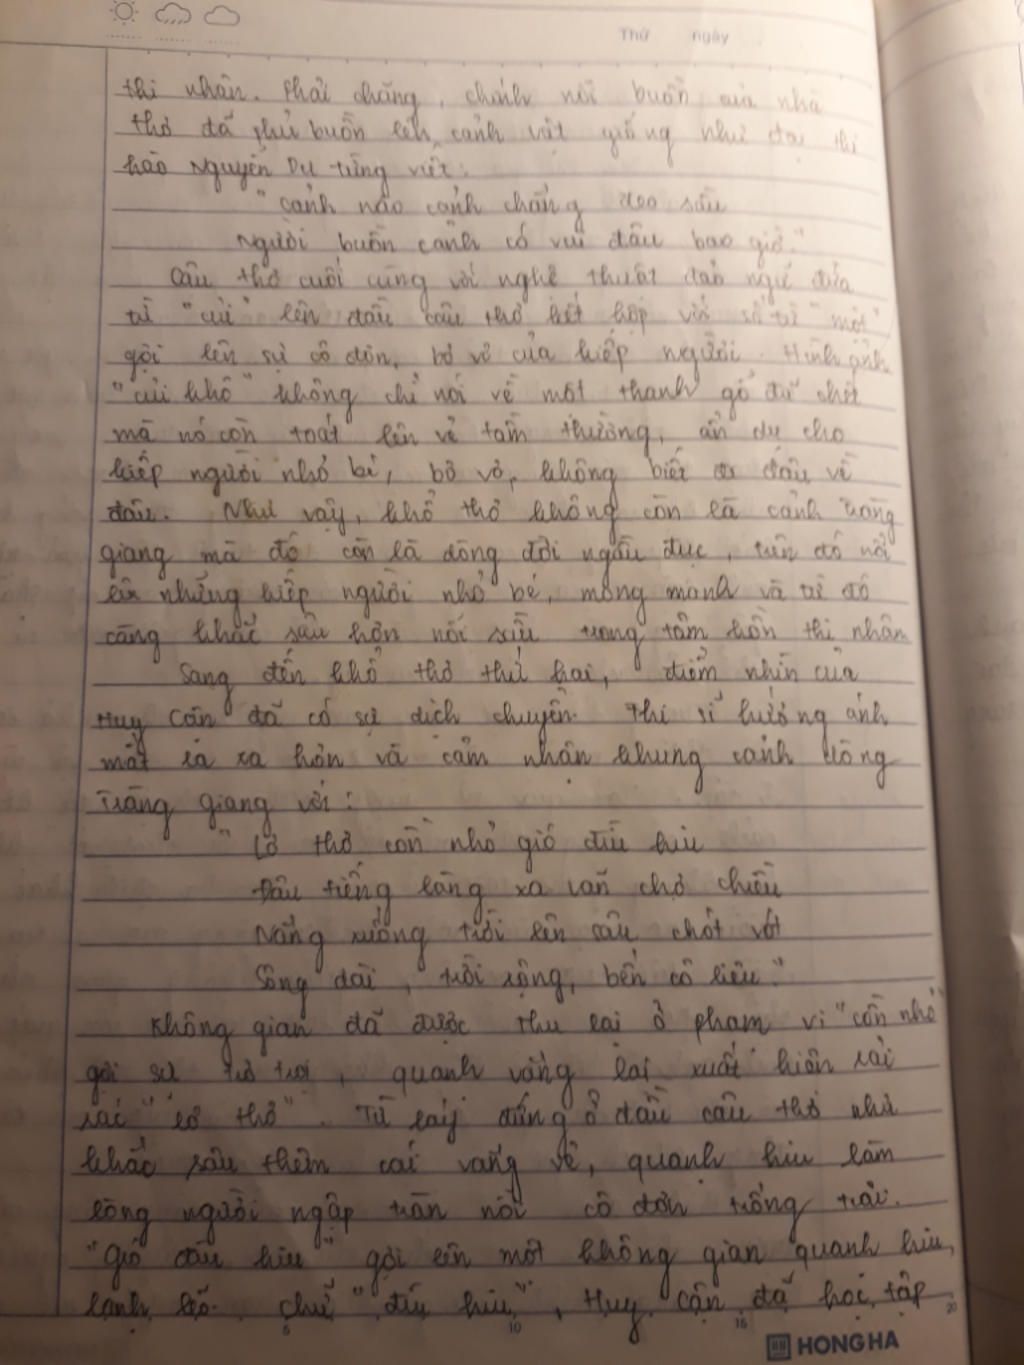 Thứ ngày
thi nhân. Phải chăng, chính nỗi buồn của nhà
thơ đã phủ buồn lên cảnh vật giống như đại thi
hào Nguyễn Du từng viết:
"Cảnh nào cảnh chẳng đeo sầu
Người buồn cảnh có vui đâu bao giờ."
Câu thơ cuối cùng với nghệ thuật đảo ngữ đưa
từ "củi" lên đầu câu thơ kết hợp với số từ "một"
gợi lên sự cô đơn, bơ vơ của kiếp người. Hình ảnh
"củi khô" không chỉ nói về một thanh gỗ đã chết
mà nó còn toát lên vẻ tầm thường, ẩn dụ cho
kiếp người nhỏ bé, bơ vơ, không biết đi đâu về
đâu. Như vậy, khổ thơ không còn là cảnh tràng
giang mà đó còn là dòng đời ngầu đục, trên đó nổi
lên những kiếp người nhỏ bé, mỏng manh và từ đó
càng khắc sâu hơn nỗi sầu trong tâm hồn thi nhân
Sang đến khổ thơ thứ hai, điểm nhìn của
Huy Cận đã có sự dịch chuyển. Thi sĩ hướng ánh
mắt ra xa hơn và cảm nhận khung cảnh trông
Tràng giang với:
"Lơ thơ cồn nhỏ gió đìu hiu
Đâu tiếng làng xa vãn chợ chiều
Nắng xuống trời lên sâu chót vót
Sông dài, trời rộng, bến cô liêu."
Không gian đã được thu lại ở phạm vi "cồn nhỏ"
gợi sự trơ trọi, quạnh vắng lại xuất hiện rải
rác "lơ thơ". Từ láy đứng ở đầu câu thơ như
khắc sâu thêm cái vắng vẻ, quạnh hiu làm
lòng người ngập tràn nỗi cô đơn trống trải.
"Gió đìu hiu" gợi lên một không gian quạnh hiu,
lạnh lẽo. chữ "đìu hiu", Huy Cận đã học tập
5 10 15 20
HONG HA